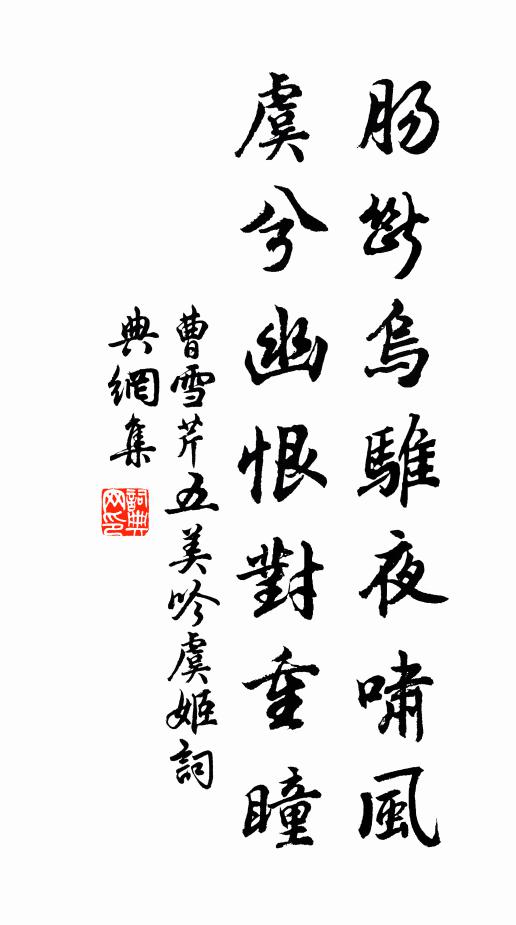 腸斷烏騅夜嘯風
虞兮幽恨對重瞳
曹雪芹五美吟虞姬詞
典網集
詞典
网印